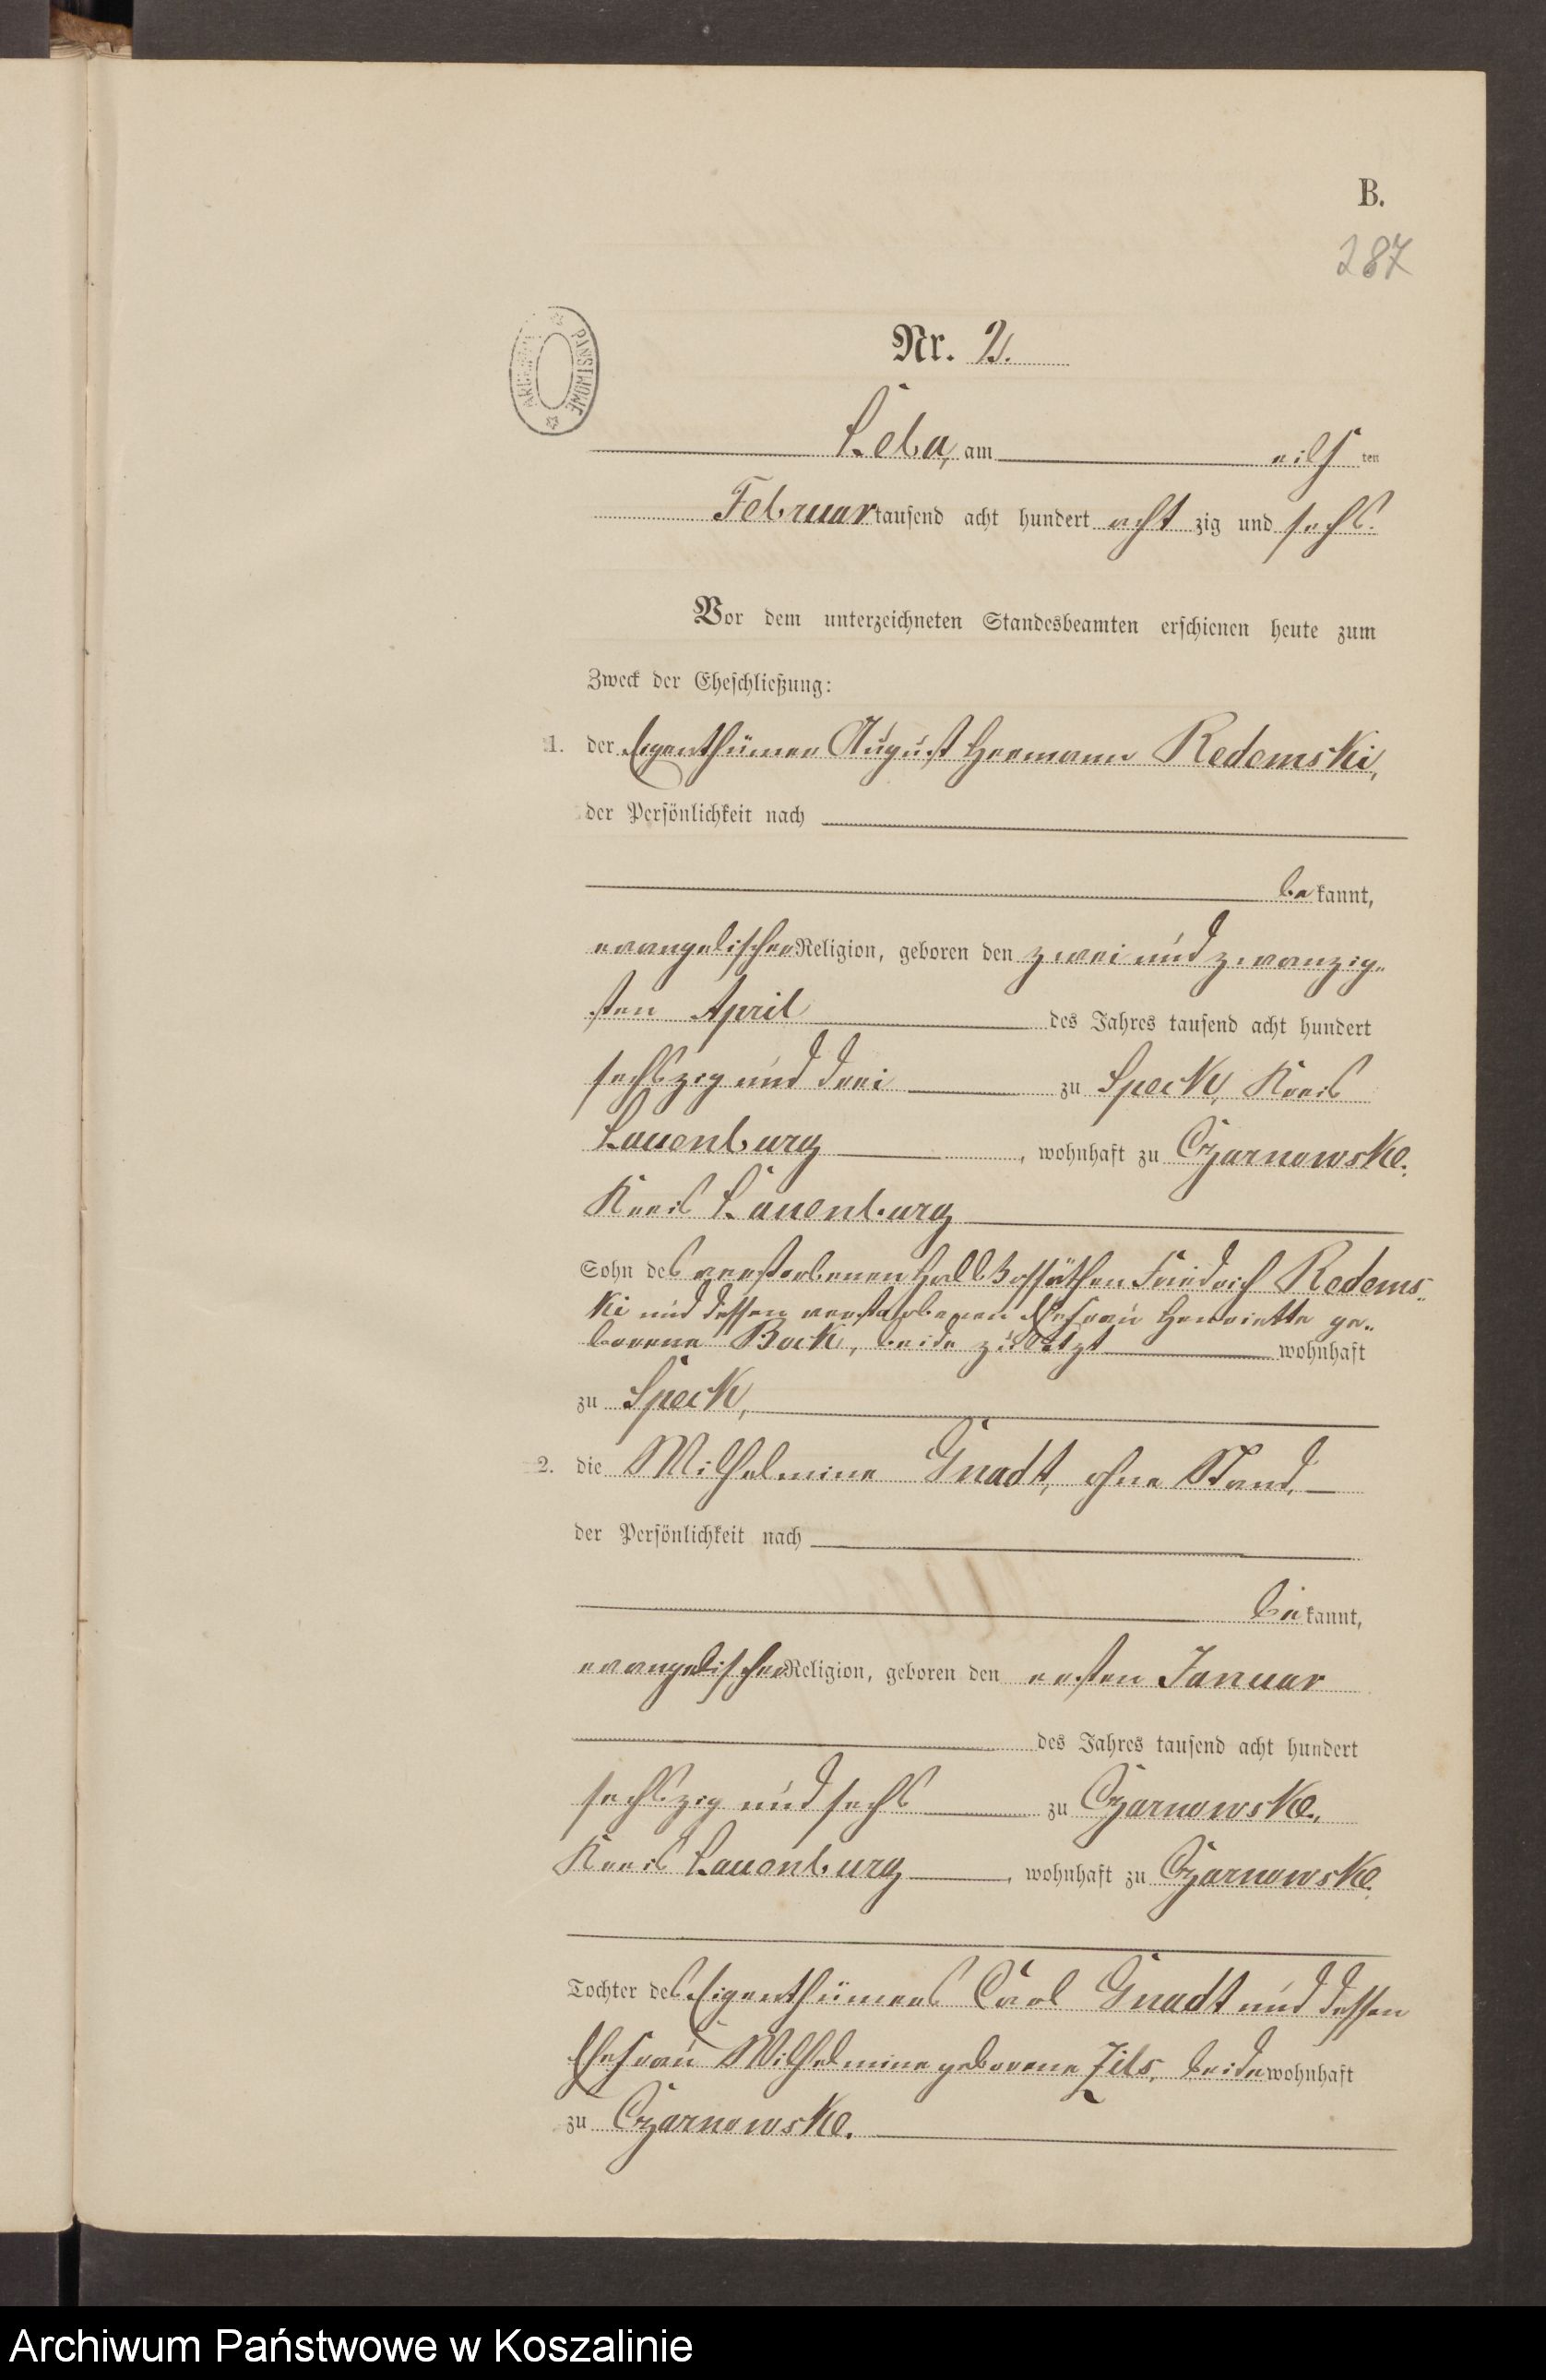 B.
287
ARCHIWUM PAŃSTWOWE
Nr. 2.
Leba, am eilf ten
Februar tausend acht hundert acht zig und sechs.
Vor dem unterzeichneten Standesbeamten erschienen heute zum
Zweck der Eheschließung:
1. der Eigenthümer August Hermann Redemski,
der Persönlichkeit nach
be kannt,
evangelischer Religion, geboren den zwei und zwanzig-
sten April des Jahres tausend acht hundert
sechszig und drei zu Speck, Kreis
Lauenburg, wohnhaft zu Czarnowske.
Kreis Lauenburg
Sohn des verstorbenen Halbkossäthen Friedrich Redems-
ki und dessen verstorbenen Ehefrau Henriette ge-
borene Bock, beide zuletzt wohnhaft
zu Speck,
2. die Wilhelmine Gnadt, ohne Stand,
der Persönlichkeit nach
be kannt,
evangelischer Religion, geboren den ersten Januar
des Jahres tausend acht hundert
sechszig und sechs zu Czarnowske,
Kreis Lauenburg, wohnhaft zu Czarnowske,
Tochter des Eigenthümers Carl Gnadt und dessen
Ehefrau Wilhelmine geborene Zils, beide wohnhaft
zu Czarnowske.
Archiwum Państwowe w Koszalinie